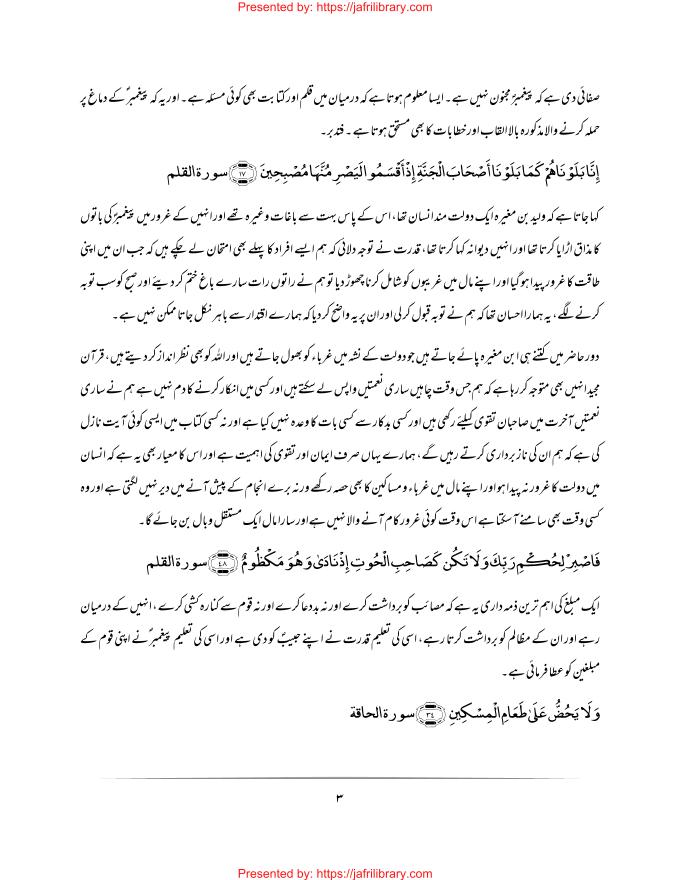 Presented by: https://jafrilibrary.com
صفائی دی ہے کہ پیغمبرؐ مجنون نہیں ہے۔ ایسا معلوم ہوتا ہے کہ درمیان میں قلم اور کتابت بھی کوئی مسئلہ ہے۔ اور یہ کہ پیغمبرؐ کے دماغ پر
حملہ کرنے والا مذکورہ بالا القاب اور خطابات کا بھی مستحق ہوتا ہے۔ فتدبر۔
إِنَّا بَلَوْنَاهُمْ كَمَا بَلَوْنَا أَصْحَابَ الْجَنَّةِ إِذْ أَقْسَمُوا لَيَصْرِمُنَّهَا مُصْبِحِينَ ﴿١٧﴾ سورة القلم
کہا جاتا ہے کہ ولید بن مغیرہ ایک دولت مند انسان تھا، اس کے پاس بہت سے باغات وغیرہ تھے اور انہیں کے غرور میں پیغمبرؐ کی باتوں
کا مذاق اڑایا کرتا تھا اور انہیں دیوانہ کہا کرتا تھا، قدرت نے توجہ دلائی کہ ہم ایسے افراد کا پہلے بھی امتحان لے چکے ہیں کہ جب ان میں اپنی
طاقت کا غرور پیدا ہو گیا اور اپنے مال میں غریبوں کو شامل کرنا چھوڑ دیا تو ہم نے راتوں رات سارے باغ ختم کر دیئے اور صبح کو سب توبہ
کرنے لگے، یہ ہمارا احسان تھا کہ ہم نے توبہ قبول کر لی اور ان پر یہ واضح کر دیا کہ ہمارے اقتدار سے باہر نکل جانا ممکن نہیں ہے۔
دور حاضر میں کتنے ہی ابن مغیرہ پائے جاتے ہیں جو دولت کے نشہ میں غرباء کو بھول جاتے ہیں اور اللہ کو بھی نظر انداز کر دیتے ہیں، قرآن
مجید انہیں بھی متوجہ کر رہا ہے کہ ہم جس وقت چاہیں ساری نعمتیں واپس لے سکتے ہیں اور کسی میں انکار کرنے کا دم نہیں ہے ہم نے ساری
نعمتیں آخرت میں صاحبان تقویٰ کیلئے رکھی ہیں اور کسی بدکار سے کسی بات کا وعدہ نہیں کیا ہے اور نہ کسی کتاب میں ایسی کوئی آیت نازل
کی ہے کہ ہم ان کی ناز برداری کرتے رہیں گے، ہمارے یہاں صرف ایمان اور تقویٰ کی اہمیت ہے اور اس کا معیار بھی یہ ہے کہ انسان
میں دولت کا غرور نہ پیدا ہو اور اپنے مال میں غرباء و مساکین کا بھی حصہ رکھے ورنہ برے انجام کے پیش آنے میں دیر نہیں لگتی ہے اور وہ
کسی وقت بھی سامنے آسکتا ہے اس وقت کوئی غرور کام آنے والا نہیں ہے اور سارا مال ایک مستقل وبال بن جائے گا۔
فَاصْبِرْ لِحُكْمِ رَبِّكَ وَلَا تَكُن كَصَاحِبِ الْحُوتِ إِذْ نَادَىٰ وَهُوَ مَكْظُومٌ ﴿٤٨﴾ سورة القلم
ایک مبلغ کی اہم ترین ذمہ داری یہ ہے کہ مصائب کو برداشت کرے اور نہ بددعا کرے اور نہ قوم سے کنارہ کشی کرے، انہیں کے درمیان
رہے اور ان کے مظالم کو برداشت کرتا رہے، اسی کی تعلیم قدرت نے اپنے حبیبؐ کو دی ہے اور اسی کی تعلیم پیغمبرؐ نے اپنی قوم کے
مبلغین کو عطا فرمائی ہے۔
وَلَا يَحُضُّ عَلَىٰ طَعَامِ الْمِسْكِينِ ﴿٣٤﴾ سورة الحاقة
٣
Presented by: https://jafrilibrary.com